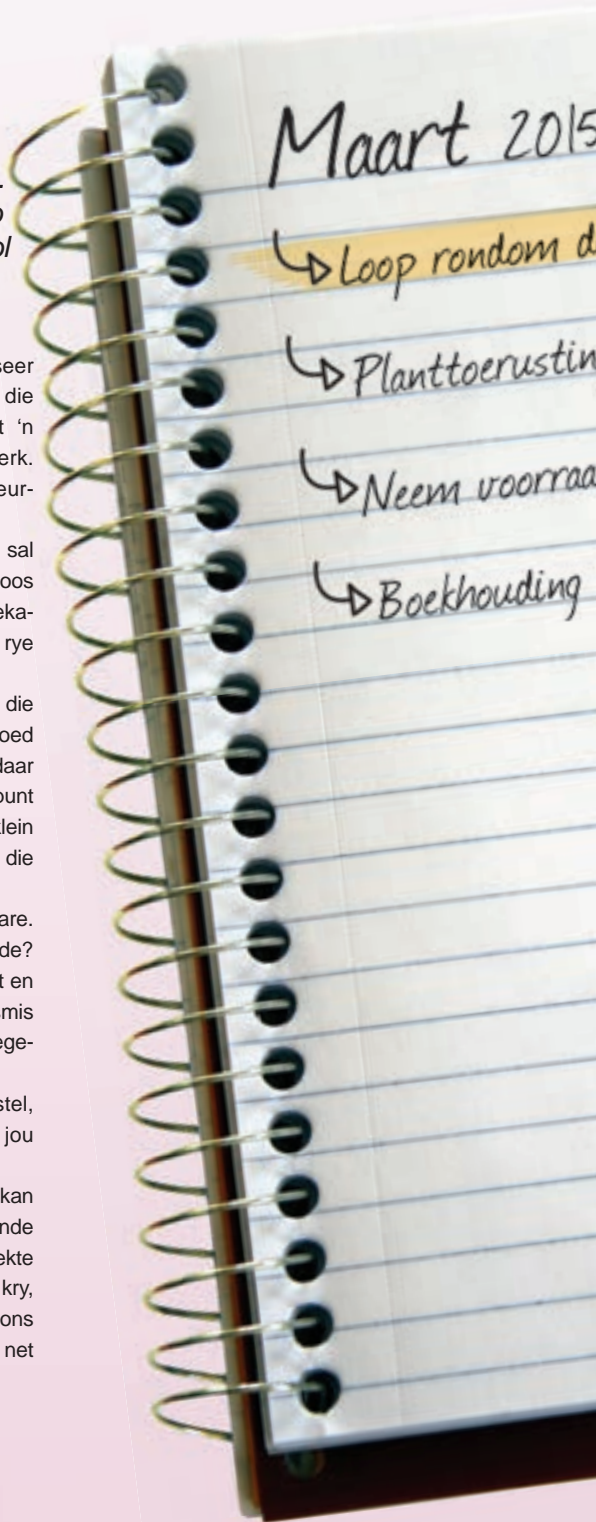 ol
seer
die
t 'n
erk.
eur-
sal
oos
eka-
rye
die
oed
daar
ount
klein
die
are.
de?
t en
mis
ege-
stel,
jou
kan
nde
ekte
kry,
ons
net
Maart 2015
Loop rondom d
Planttoerustin
Neem voorraa
Boekhouding